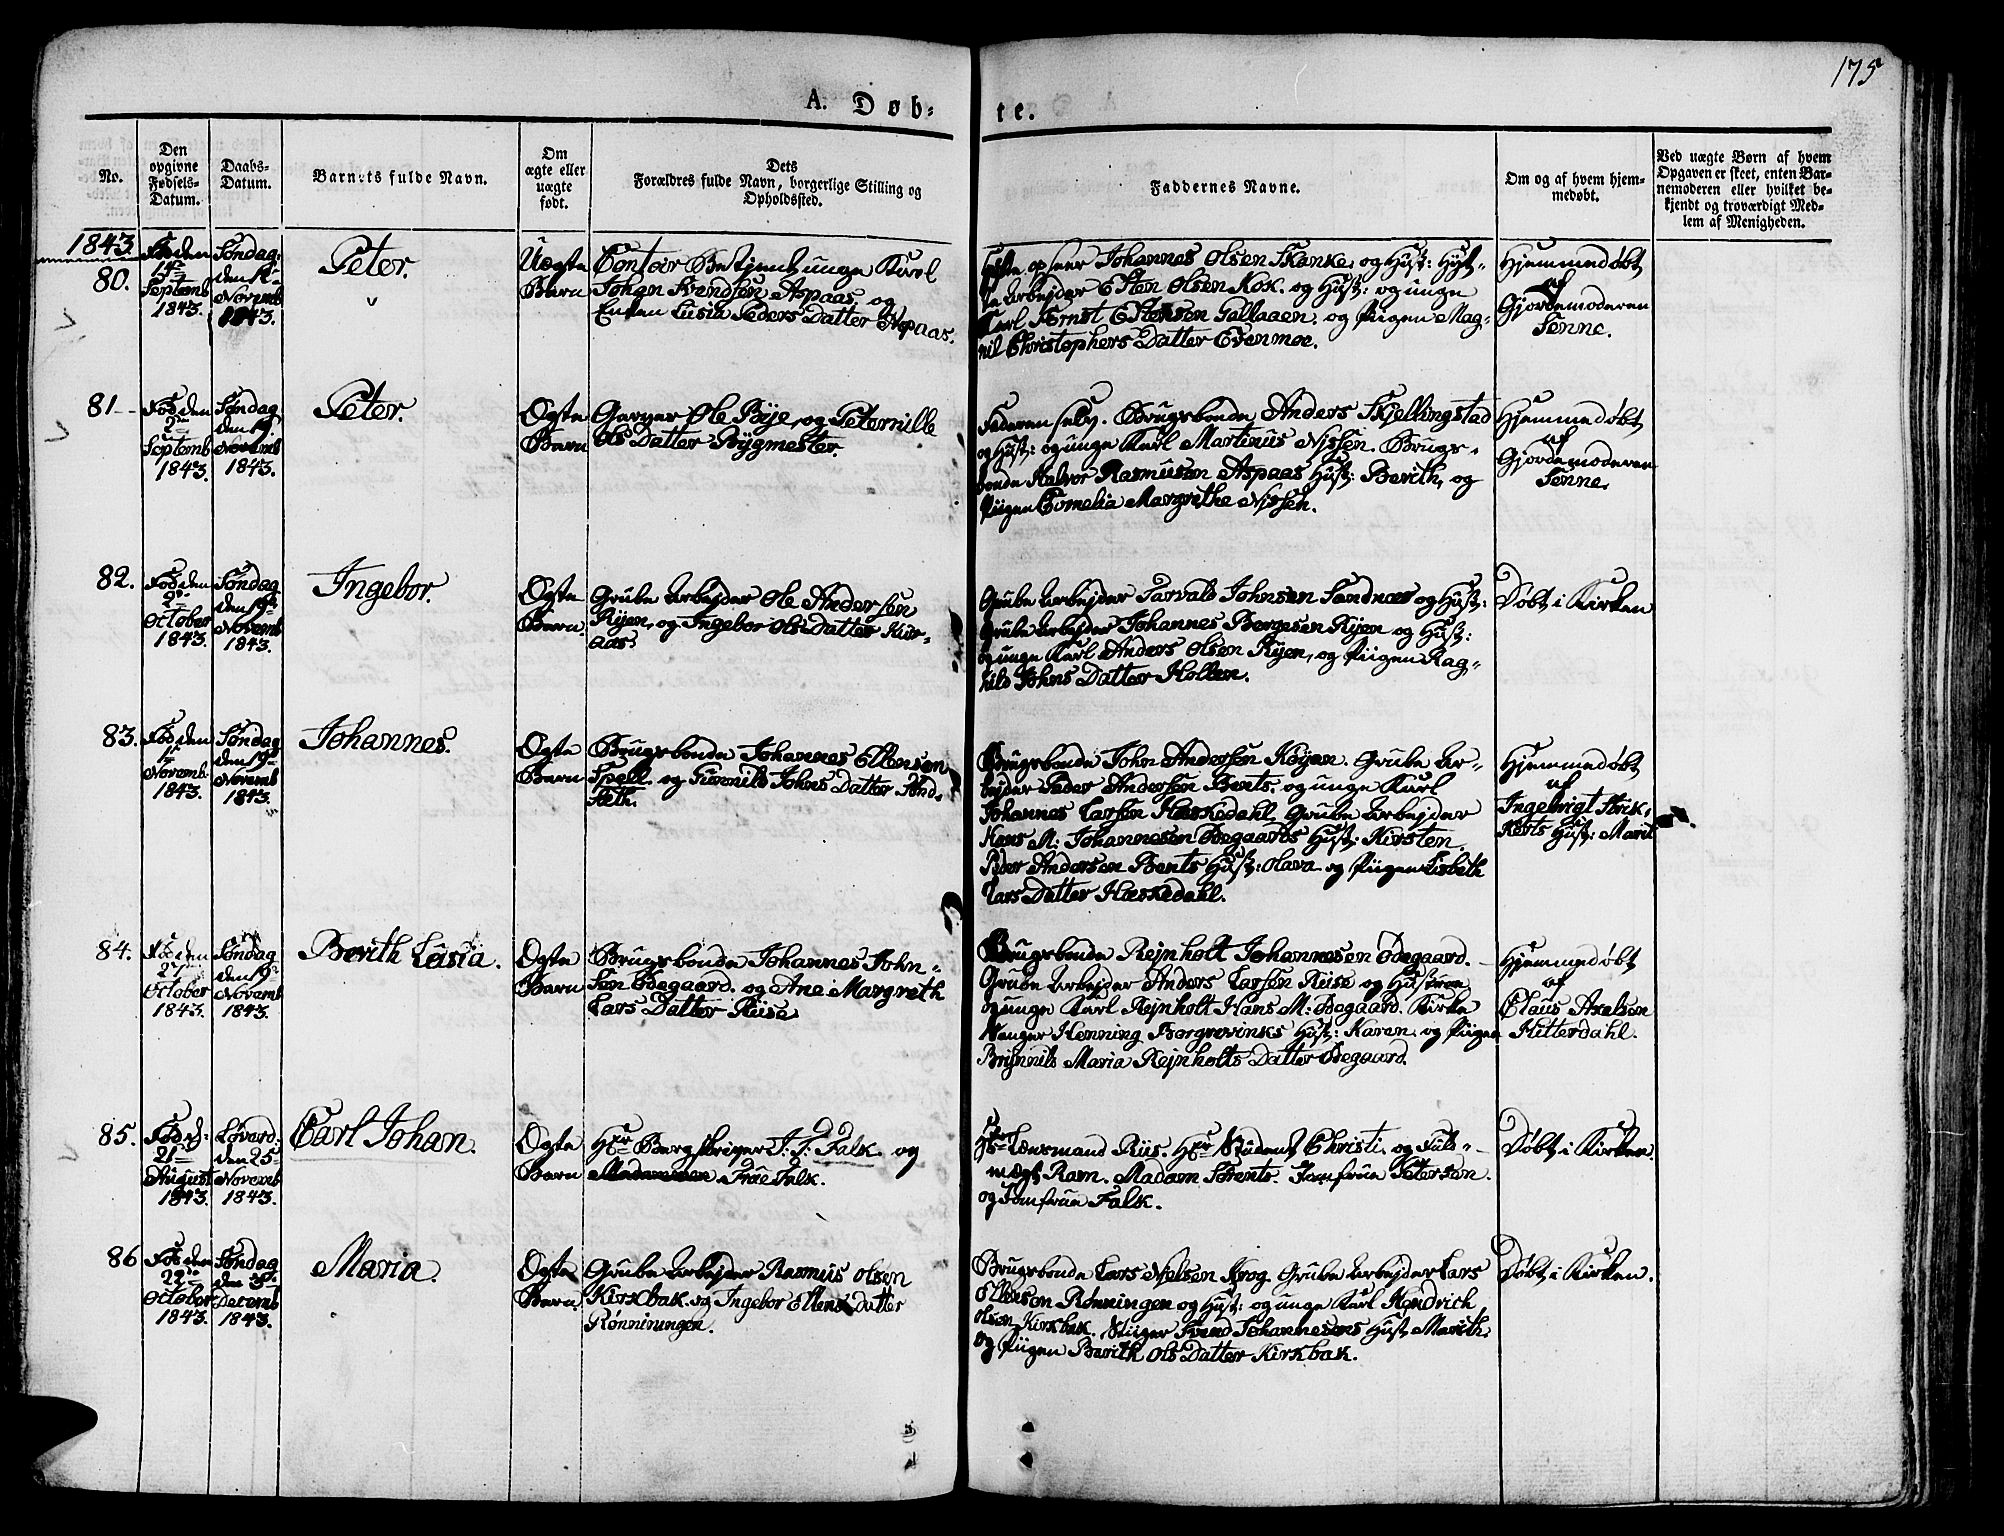 175
A. Døb-
te.
No.
Den opgivne Fødsels-Datum.
Daabs-Datum.
Barnets fulde Navn.
Om ægte eller uægte født.
Dets Forældres fulde Navn, borgerlige Stilling og Opholdssted.
Faddernes Navne.
Om og af hvem hjem-medøbt.
Ved uægte Børn af hvem Opgaven er skeet, enten Bar-nemoderen eller hvilket be-kjendt og troværdigt Med-lem af Menigheden.
1843
80.
Fød den
Septemb
1843.
Søndag
Novemb
1843.
Peter.
Uægte
Barn
Contoir Betjent unge Karl
Johan Svendsen Aspaas, og
Enken Lusia Peders Datter Aspaas.
opseer Johannes Olsen Skanke, og Hust: Hyt-
te Arbejder Esten Olsen Kok. og Hust: og unge
Karl Ernst Estensen Gallaaen, og Piigen Mag-
nil Christophers Datter Evenmoe.
Hjemmedøbt
af
Gjordemoderen
Tenne.
81
Fød den
2de
Septemb
1843.
Søndag
den 19
Novemb
1843.
Peter.
Ægte
Barn
Garver Ole Bye, og Peternille
Ols Datter Bygmester.
Faderen selv. Brugsbonde Anders Skjellingstad
og Hust: og unge Karl Martinus Nissen. Brugs-
bonde Halvor Rasmusen Aspaas Hust: Berith, og
Piigen Cornelia Margrethe Nissen.
Hjemmedøbt
af
Gjordemoderen
Tenne.
82.
Fød den
October
1843.
Søndag
den 19de
Novemb
1843.
Ingebor.
Ægte
Barn.
Grube Arbejder Ole Andersen
Ryen, og Ingebor Ols Datter Kur-
aas.
Grube Arbejder Tarvald Johnsen Sandnæs og Hust:
Grube Arbejder Johannes Bergesen Ryen og Hust:
og unge Karl Anders Olsen Ryen, og Piigen Rag-
hild Johns Datter Holden.
Døbt i Kirken
83.
Fød den
1ste
Novemb.
1843.
Søndag
den 19de
Novemb
1843.
Johannes.
Ægte
Barn
Brugsbonde Johannes Ellensen
Spell. og Gunnild Johns Datter Sund-
seth.
Brugsbonde John Andersen Røyen. Grube Ar-
bejder Peder Andersen Bents. og unge Karl
Johannes Larsen Hæskedahl. Grube Arbejder
Hans M: Johannesen Ødegaards Hust: Kirsten.
Peder Andersen Bents Hust: Olava og Piigen Lisbeth
Lars Datter Hæskedahl.
Hjemmedøbt
af
Ingebrigt
Hust: Marit
84.
Fød den
27
October
1843.
Søndag
den 19de
Novemb
1843.
Berith Lusia.
Ægte
Barn
Brugsbonde Johannes John-
sen Ødegaard. og Ane Margreth
Lars Datter Riise.
Brugsbonde Rejnholt Johannesen Ødegaard.
Grube Arbejder Anders Larsen Riise og Hustrue
og unge Karl Rejnholt Hans M: Ødegaard. Kirke
Sanger Henning Borgrevinks Hust: Karen. og Piigen
Brynnild Maria Rejnholts Datter Ødegaard.
Hjemmedøbt
af
Claus Axelsen
Hitterdahl.
85.
Fød d:
21
August
1843.
Løverd:
den 25
Novemb
1843.
Carl Johan.
Ægte
Barn
Hr Bergskriver J: J: Falk. og
Frue Falk.
Hr Lensmand Riis. Hr Student Christi. og Fuld-
mægt Ram. Madam Torents. Jomfrue Petersen.
og Jomfrue Falk.
Døbt i Kirken.
86
Fød den
22de
October
1843.
Søndag
den 3de
Decemb
1843.
Maria.
Ægte
Barn.
Grube Arbejder Rasmus Olsen
Kirkbak. og Ingebor Ellens Datter
Rønningen.
Brugsbonde Lars Nielsen Krog. Grube Arbejder Lars
Ellensen Rønningen og Hust: og unge Karl Hendrich
Olsen Kirkbak. Stiiger Svend Johannesens Hust Marith.
og Piigen Berith Ols Datter Kirkbak.
Døbt i Kirken.